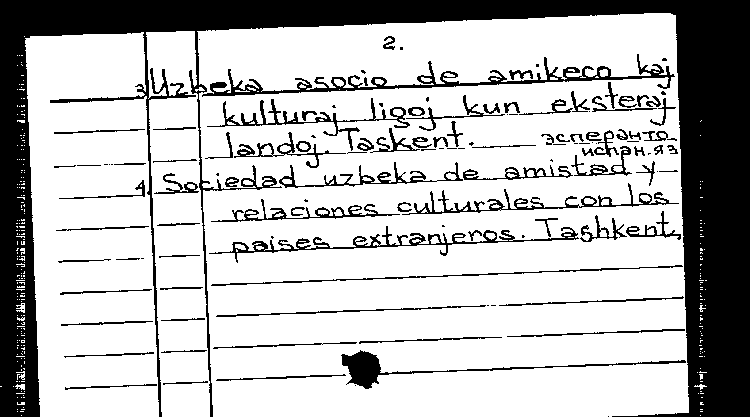 2.
3 Uzbeka asocio de amikeco kaj
kulturaj ligoj kun eksteraj
landoj. Taskent. эсперанто
испан.яз
4. Sociedad uzbeka de amistad y
relaciones culturales con los
paises extranjeros. Tashkent,